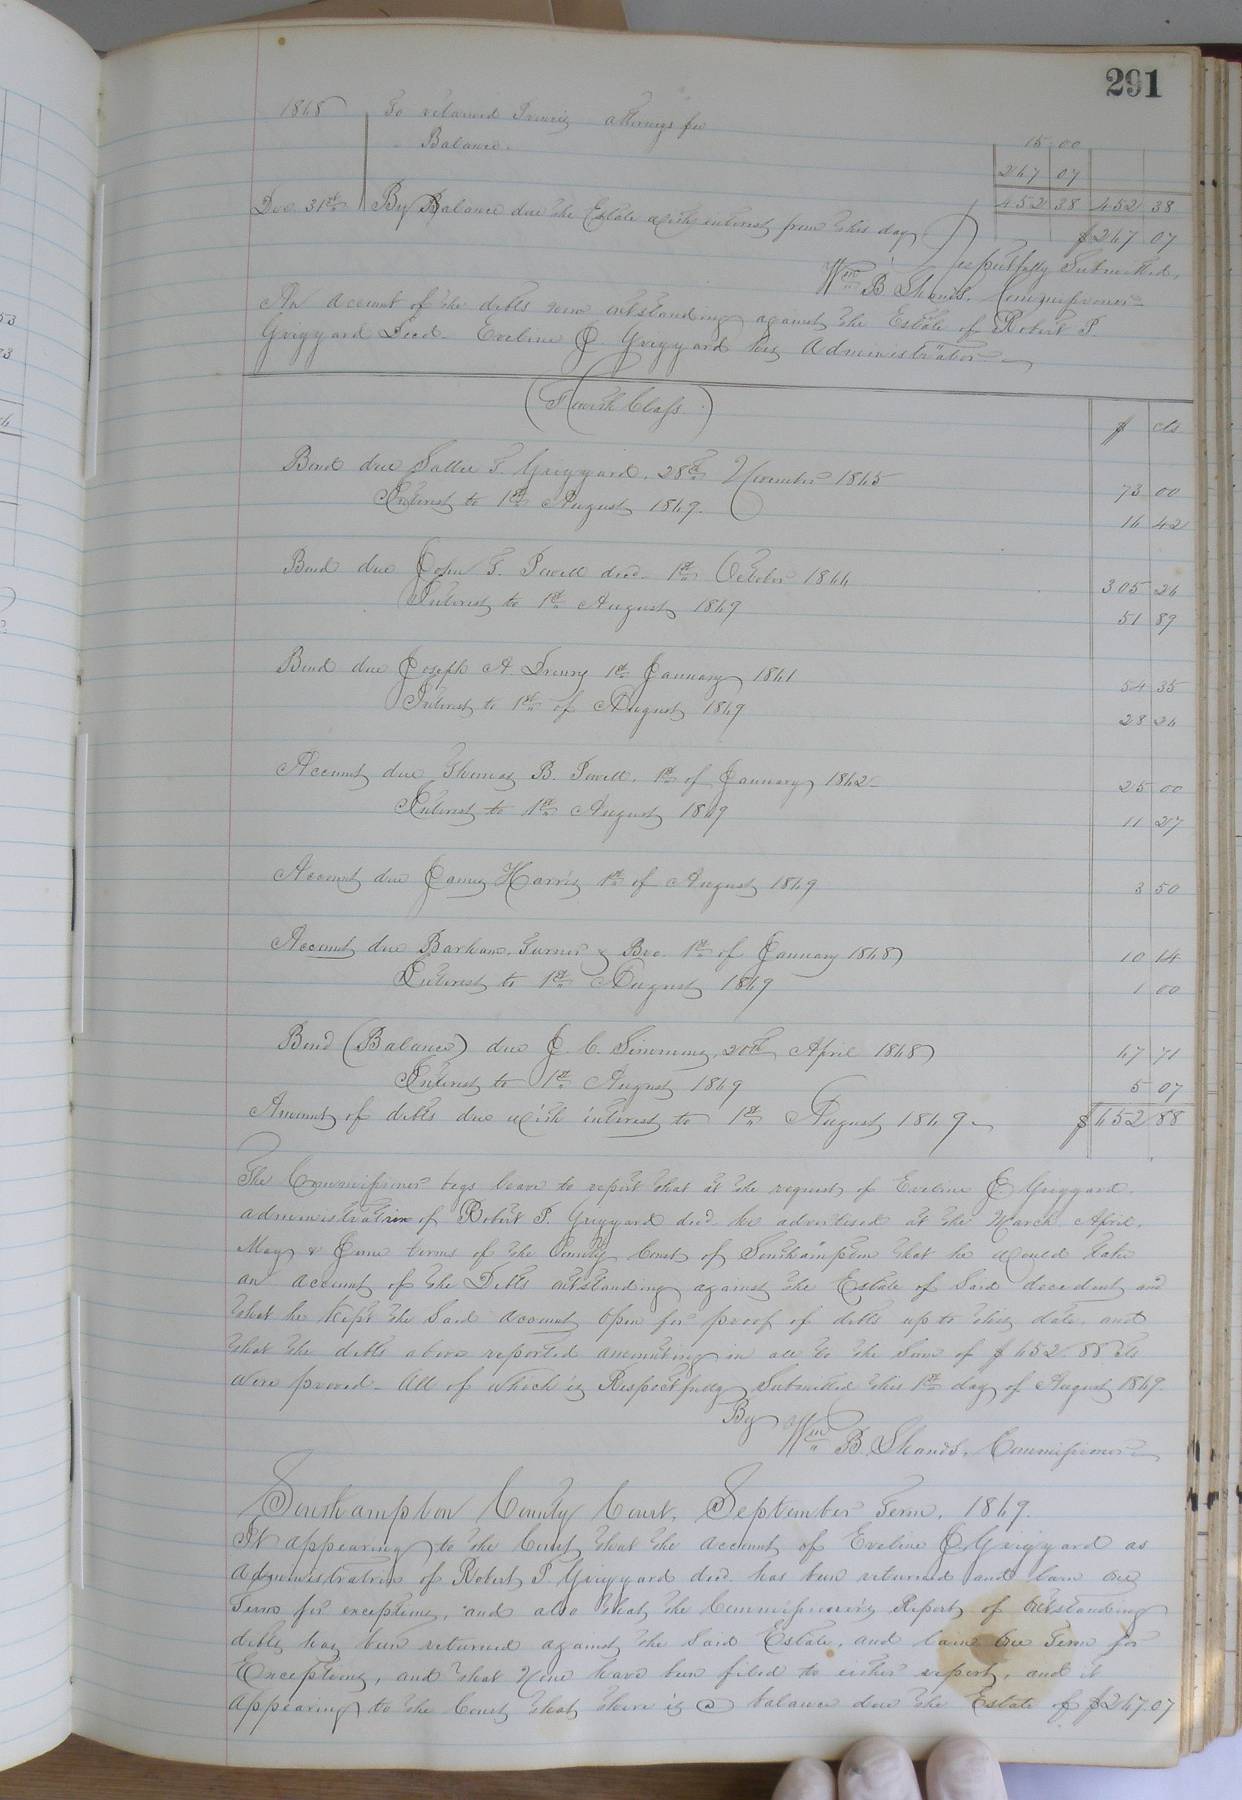 291
1868 To retained Drewry attorneys fee 15 00
" Balance. 267 07
452 38 452 38
Dec. 31st By Balance due the Estate with interest from this day $267 07
Respectfully Submitted,
Wm B. Shands, Commissioner
An account of the debts now outstanding against the Estate of Robert P.
Griggard Decd. Eveline J. Griggard his Administratrix
(Fourth Class.) $ cts
Bond due Sallie T. Griggard, 28th November 1865 73 00
Interest to 1st August 1869. 16 42
Bond due John T. Powell decd 1st October 1866 305 26
Interest to 1st August 1869 51 89
Bond due Joseph A. Drewry 1st January 1861 54 35
Interest to 1st of August 1869 28 26
Account due Thomas B. Powell. 1st of January 1862 25 00
Interest to 1st August 1869 11 27
Account due James Harris 1st of August 1869 3 50
Account due Barham, Turner & Bro. 1st of January 1868 10 14
Interest to 1st August 1869 1 00
Bond (Balance) due J. C. Simmons, 20th April 1868 67 71
Interest to 1st August 1869 5 07
Amount of debts due with interest to 1st August 1869 $652 88
The Commissioner begs leave to report that at the request of Eveline J. Griggard
administratrix of Robert P. Griggard decd he advertised at the March April,
May & June terms of the County Court of Southampton that he would take
an account of the Debts outstanding against the Estate of Said decedent and
that he kept the Said account open for proof of debts up to this date, and
that the debts above reported amounting in all to the Sum of $652.88 cts
were proved. All of which is Respectfully Submitted this 1st day of August 1869.
By Wm B. Shands, Commissioner
Southampton County Court, September Term, 1869.
It appearing to the Court that the account of Eveline J. Griggard as
administratrix of Robert P Griggard decd. has been returned and lain one
Term for exceptions, and also that the Commissioner's Report of outstanding
debts has been returned against the Said Estate, and lain One Term for
Exceptions, and that None have been filed to either report, and it
appearing to the Court that there is a balance due the Estate of $267.07